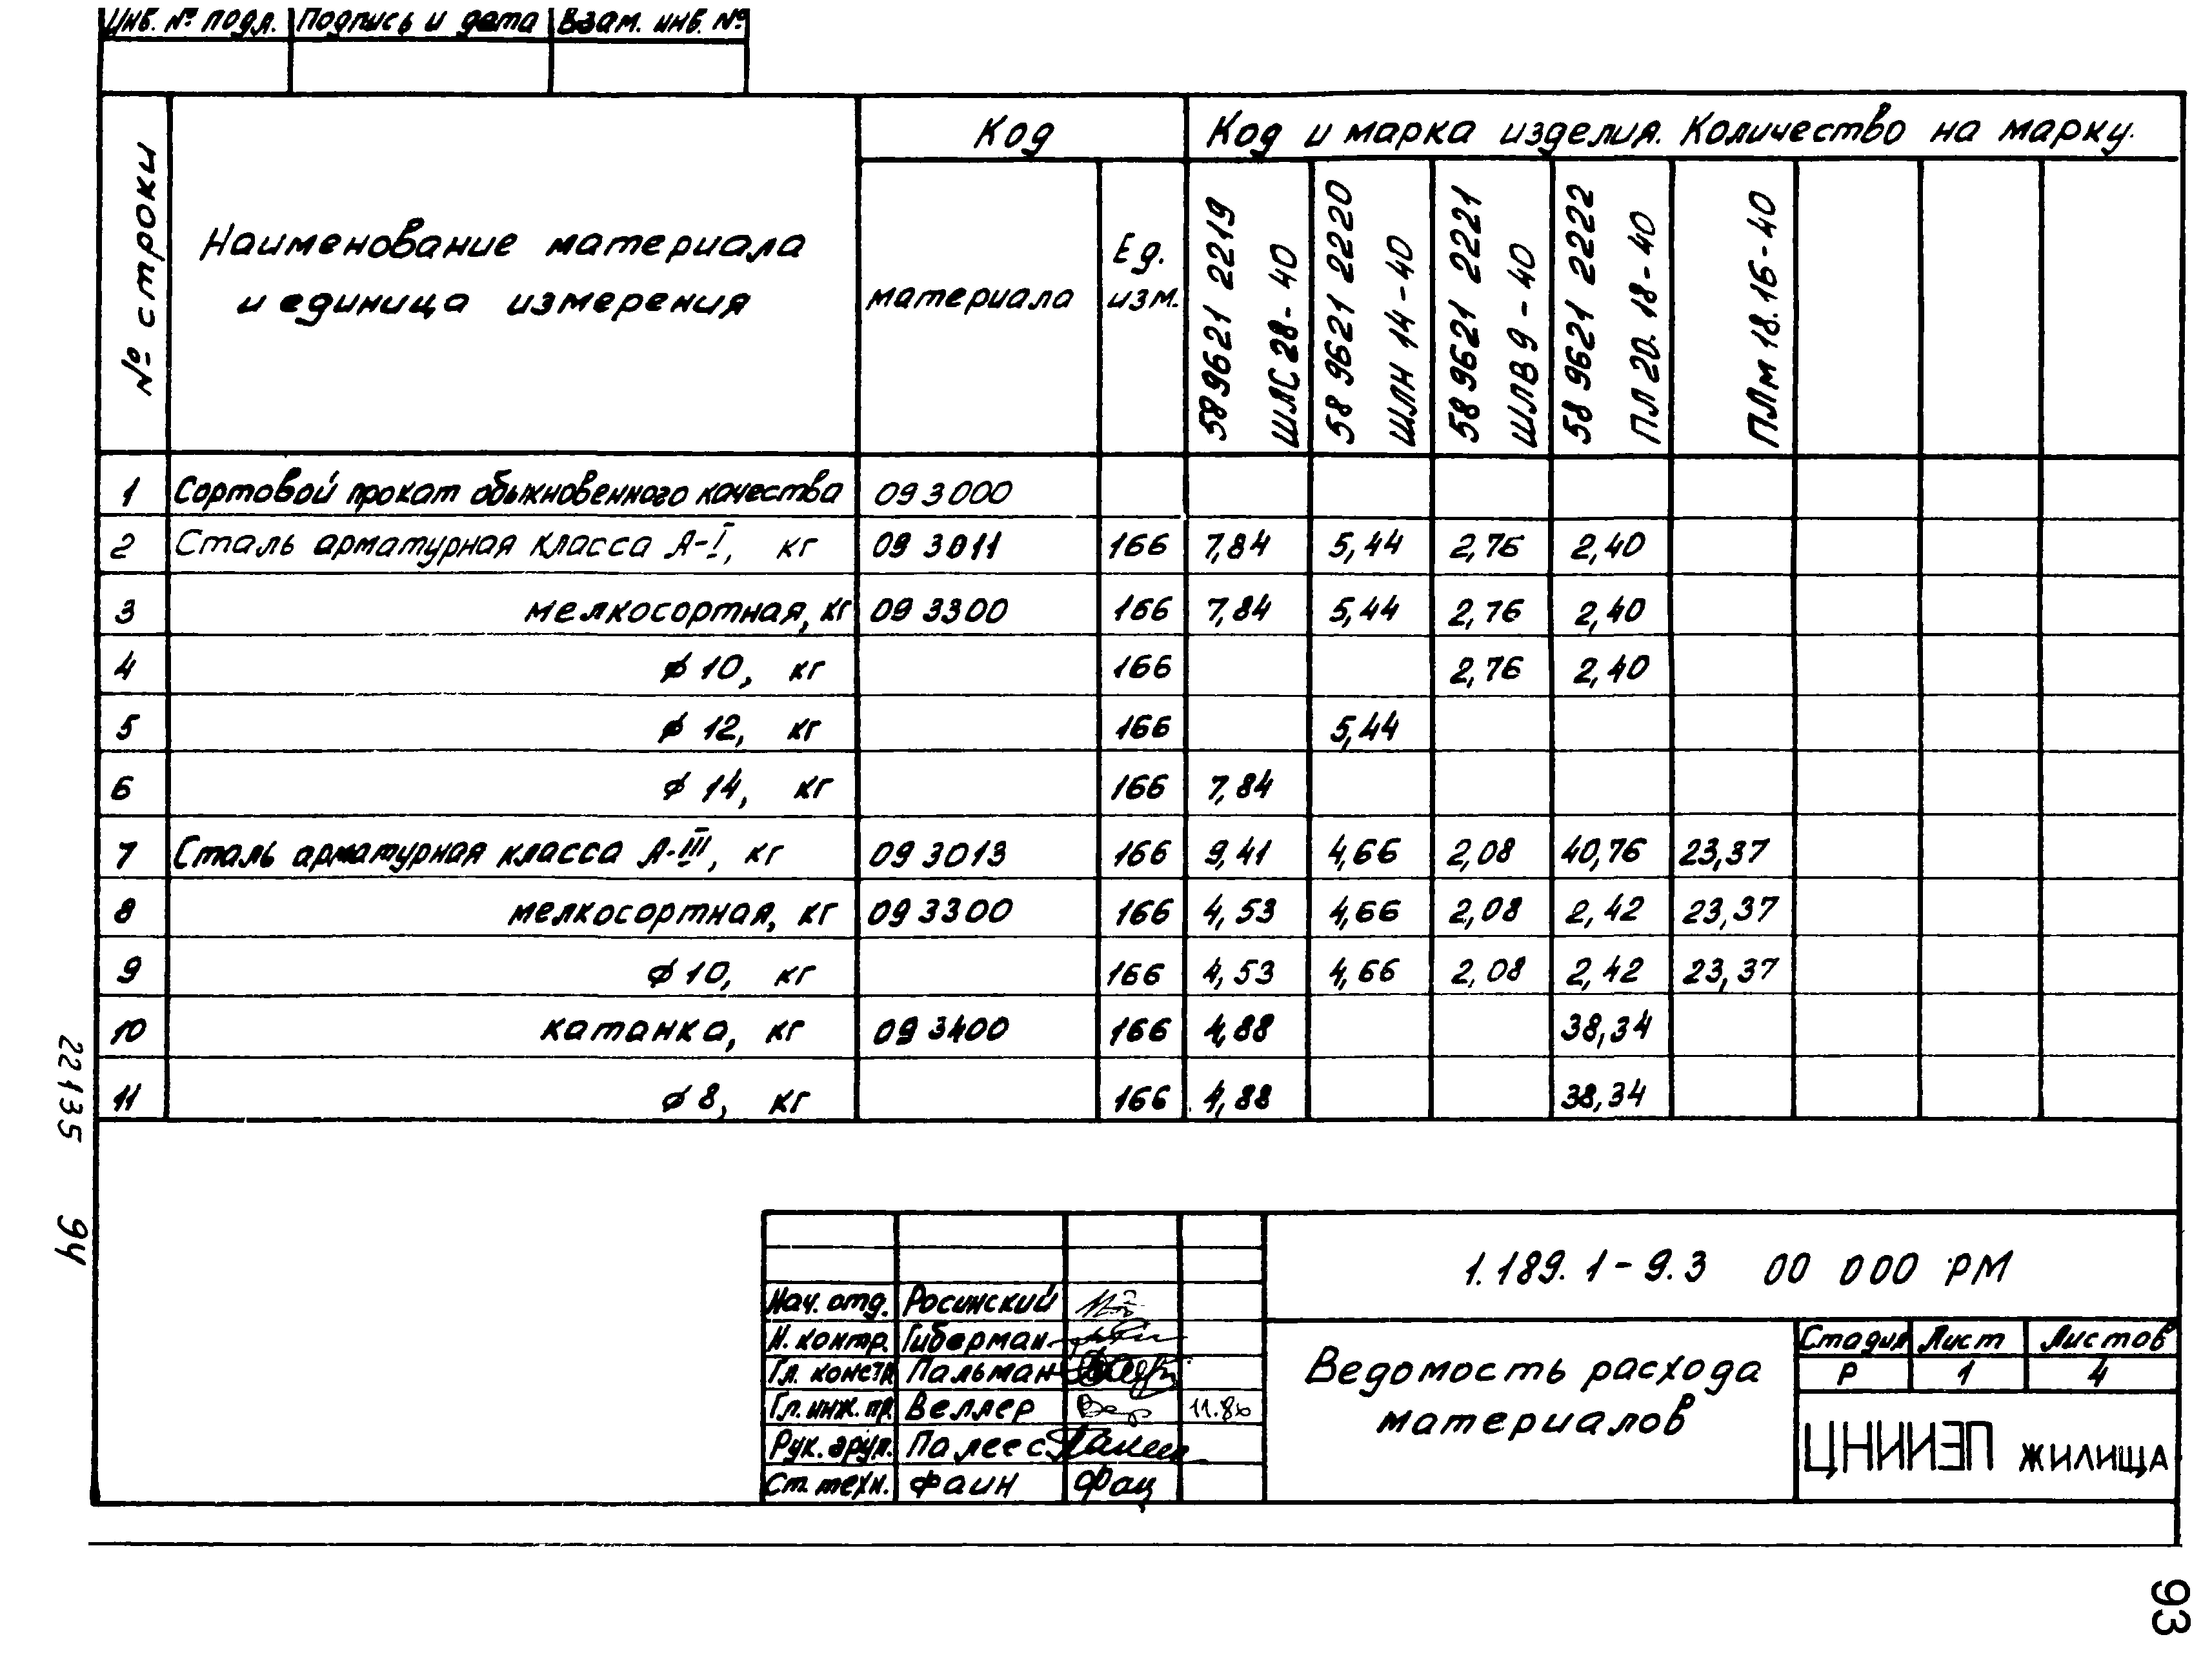 Инв. № подл. Подпись и дата Взам. инв. №
№ строки
Наименование материала
и единица измерения
Код
материала
Ед.
изм.
Код и марка изделия. Количество на марку.
58 9621 2219
ШЛС 28-40
58 9621 2220
ШЛН 14-40
58 9621 2221
ШЛВ 9-40
58 9621 2222
ПЛ 20.18-40
ПЛм 18.16-40
1 Сортовой прокат обыкновенного качества 093000
2 Сталь арматурная класса А-I, кг 09 3011 166 7,84 5,44 2,76 2,40
3 мелкосортная, кг 09 3300 166 7,84 5,44 2,76 2,40
4 ϕ 10, кг 166 2,76 2,40
5 ϕ 12, кг 166 5,44
6 ϕ 14, кг 166 7,84
7 Сталь арматурная класса А-III, кг 09 3013 166 9,41 4,66 2,08 40,76 23,37
8 мелкосортная, кг 09 3300 166 4,53 4,66 2,08 2,42 23,37
9 ϕ 10, кг 166 4,53 4,66 2,08 2,42 23,37
10 катанка, кг 09 3400 166 4,88 38,34
11 ϕ 8, кг 166 4,88 38,34
22135 94
1.189.1-9.3 00 000 РМ
Нач. отд. Росинский
Н. контр. Гиберман
Гл. констр. Пальман
Гл. инж. пр. Веллер 11.86
Рук. груп. Палеес
Ст. техн. Фаин
Ведомость расхода
материалов
Стадия Лист Листов
Р 1 4
ЦНИИЭП жилища
93